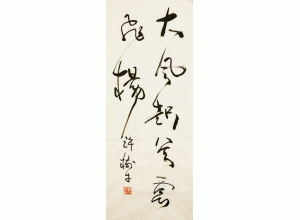 大风起兮云
飞扬
许